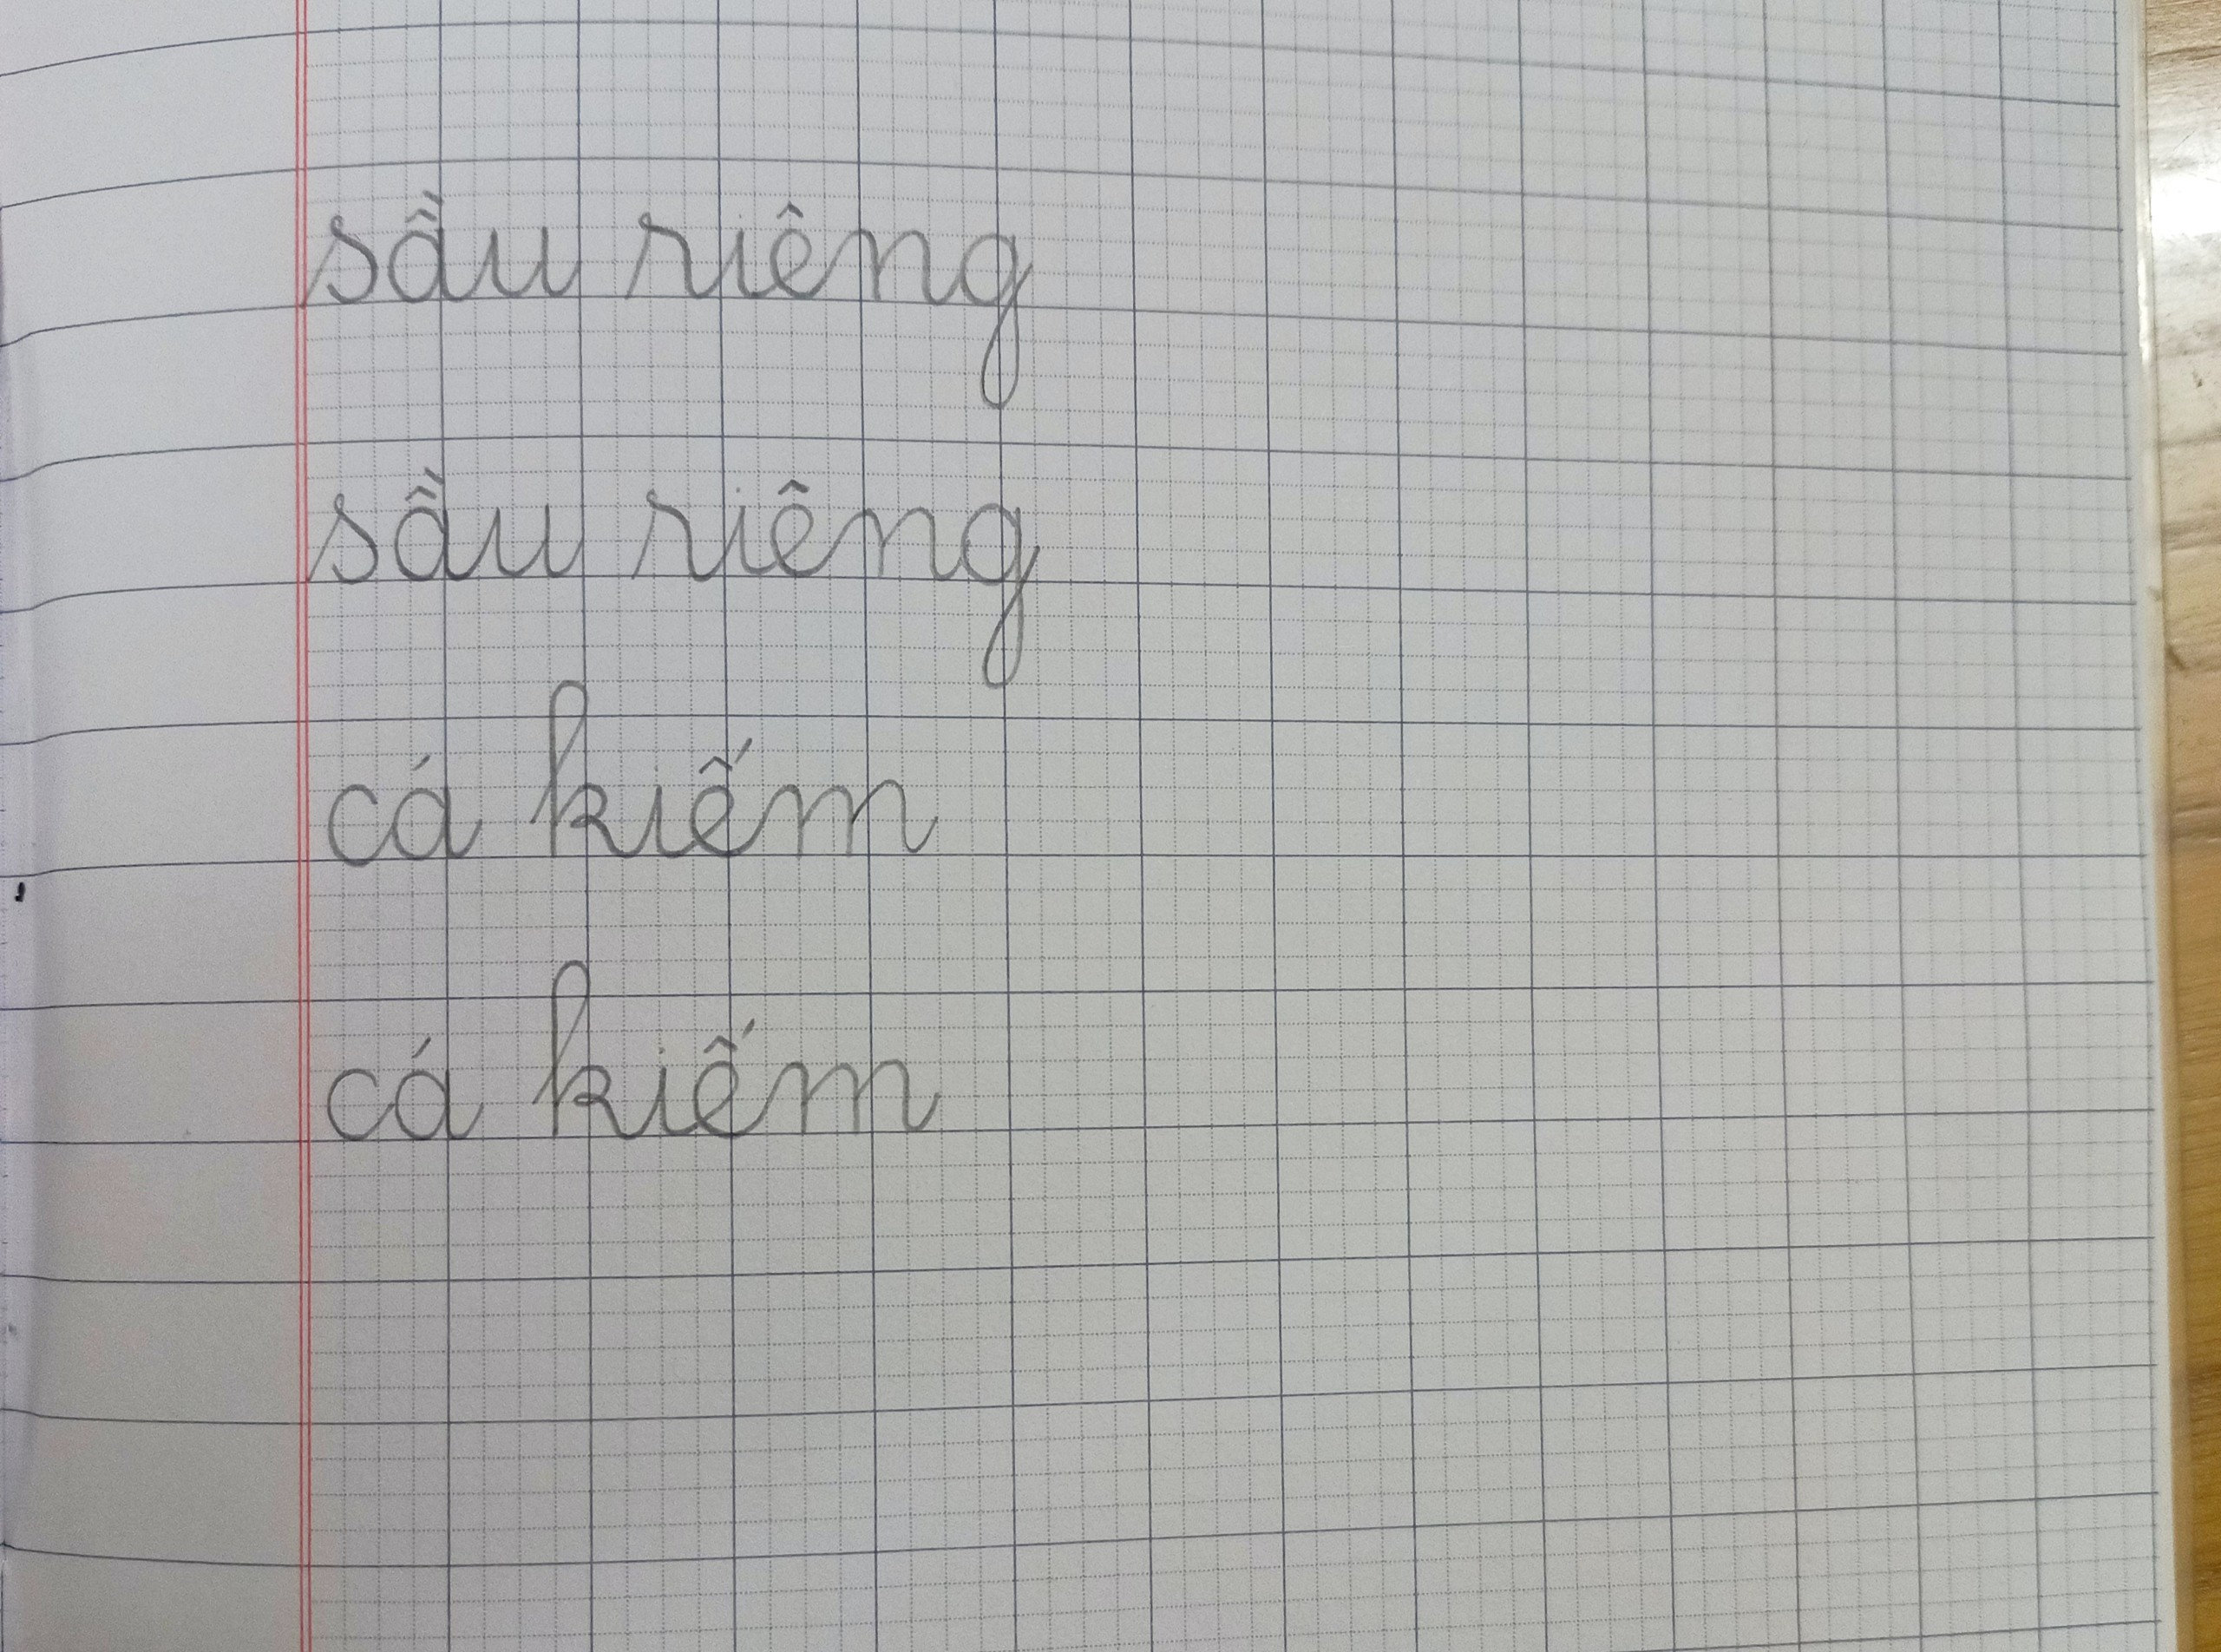 sầu riêng
sầu riêng
cá kiếm
cá kiếm